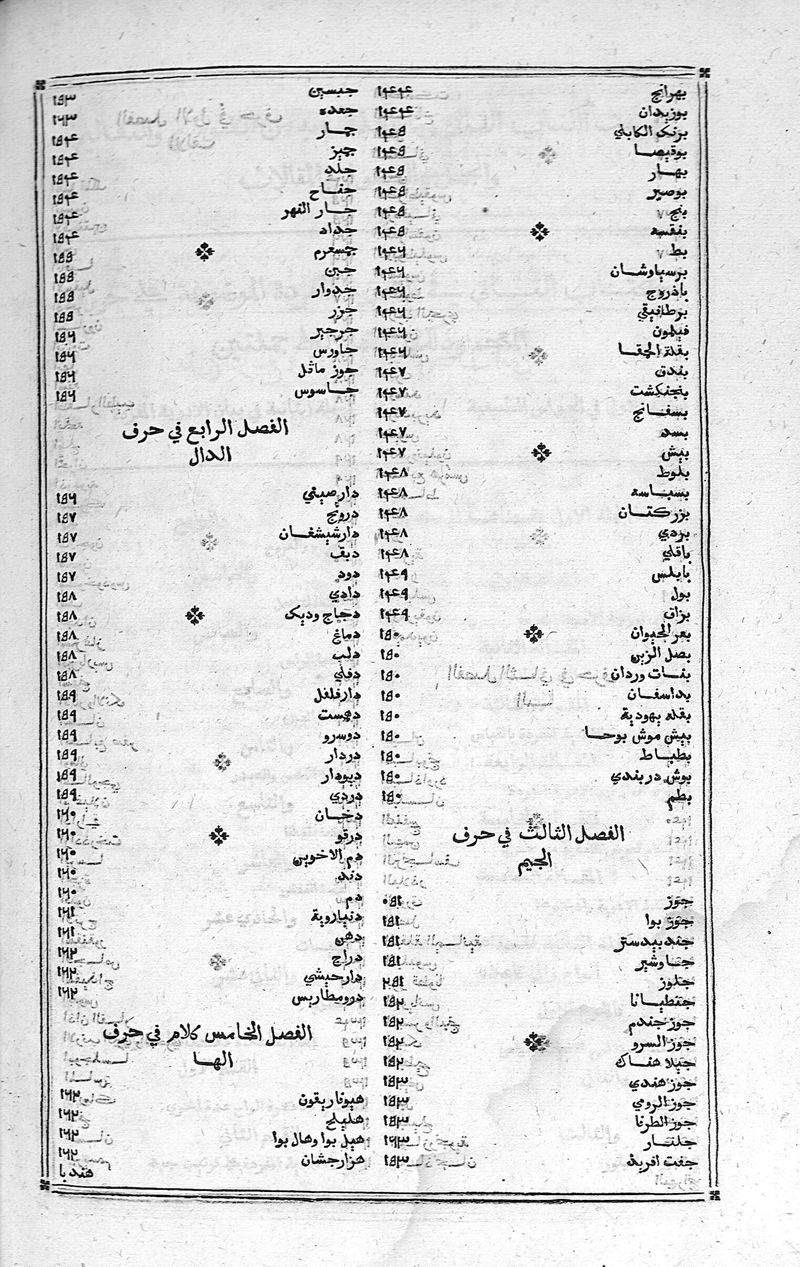 بهرايج ١٤٤
بوزيدان ١٤٤
برنك الكابلي ١٤٥
بوقيصا ١٤٥
بهار ١٤٥
بوصير ١٤٥
بنج ١٤٥
بنفسج ١٤٥
بط ١٤٦
برسياوشان ١٤٦
باذروج ١٤٦
برطانيقي ١٤٦
فيلمون ١٤٦
بقلة الحمقا ١٤٦
بندق ١٤٧
بنجنكشت ١٤٧
بسفانج ١٤٧
بسد ١٤٧
بيش ١٤٧
بلوط ١٤٨
بسباسه ١٤٨
بزركتان ١٤٨
بردي ١٤٨
باقلي ١٤٨
بابلس ١٤٩
بول ١٤٩
بزاق ١٤٩
بعر الحيوان ١٥٠
بصل الزير ١٥٠
بنات وردان ١٥٠
بداسغان ١٥٠
بقله يهودية ١٥٠
بيش موش بوحا ١٥٠
بطباط ١٥٠
بوش دربندي ١٥٠
بطم ١٥٠
الفصل الثالث في حرف
الجيم
جوز ١٥٠
جوز بوا ١٥١
جندبيدستر ١٥١
جاوشير ١٥١
جلوز ١٥٢
جنطيانا ١٥٢
جوز جندم ١٥٢
جوز السرو ١٥٢
جبلاهناك ١٥٢
جوز هندي ١٥٣
جوز الرومي ١٥٣
جوز الطرفا ١٥٣
جلنار ١٥٣
جفت افريد ١٥٣
جبسين ١٥٣
جعده ١٥٣
جمار ١٥٤
جبز ١٥٤
جلد ١٥٤
جفاح ١٥٤
جار النهر ١٥٤
جداد ١٥٤
جسعرم ١٥٥
جبن ١٥٥
جدوار ١٥٥
جزر ١٥٥
جرجير ١٥٦
جاورس ١٥٦
جوز ماثل ١٥٦
جاسوس ١٥٦
الفصل الرابع في حرف
الدال
دارصيني ١٥٦
درونج ١٥٧
دارشيشغان ١٥٧
دبق ١٥٧
دود ١٥٧
دادي ١٥٨
دجاج وديك ١٥٨
دماغ ١٥٨
دلب ١٥٨
دفلي ١٥٨
دارفلفل ١٥٩
دهمست ١٥٩
دوسرو ١٥٩
دردار ١٥٩
ديودار ١٥٩
دردي ١٥٩
دخان ١٦٠
درقو ١٦٠
دم الاخوين ١٦٠
دند ١٦٠
دم ١٦٠
دنيارويه ١٦١
دهن ١٦١
دراج ١٦٢
دارحيشي ١٦٢
درومطاريس ١٦٢
الفصل الخامس كلام في حرف
الها
هيوفاريقون ١٦٢
هليلج ١٦٢
هيل بوا وهال بوا ١٦٢
هزارجشان ١٦٢
هندبا